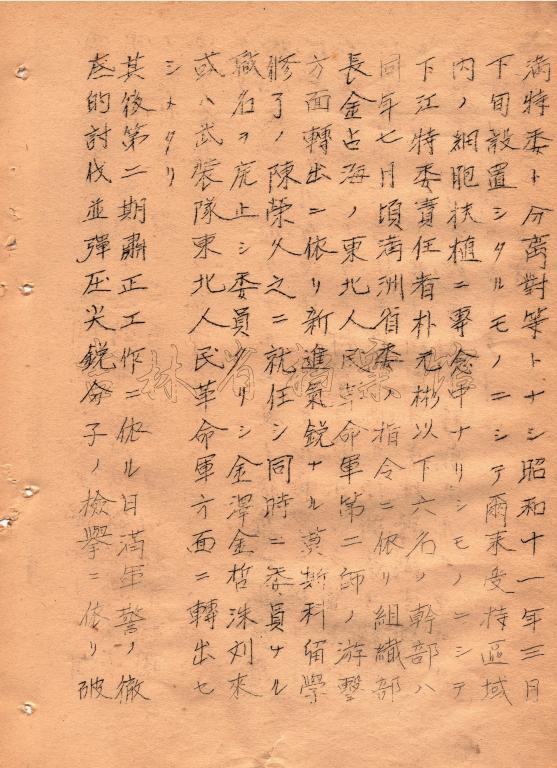 満特委ト分离對等トナシ昭和十一年三月
下旬設置シタルモノニシテ爾来受持區域
内ノ細胞扶植ニ專念中ナリシモノニシテ
下江特委責任者朴元彬以下六名ノ幹部ハ
同年七月頃満洲省委ノ指令ニ依リ組織部
長金占海ノ東北人民革命軍第二師ノ游擊
方面轉出ニ依リ新進氣鋭ナル莫斯科留學
修了ノ陳榮久之ニ就任シ同時ニ委員ナル
職名ヲ廃止シ委員タリシ金澤金哲洙刘来
或ハ武裝隊東北人民革命軍方面ニ轉出セ
シメタリ
其後第二期肅正工作ニ依ル日満軍警ノ徹
底的討伐並彈圧尖鋭分子ノ檢擧ニ依リ破
吉林省档案馆